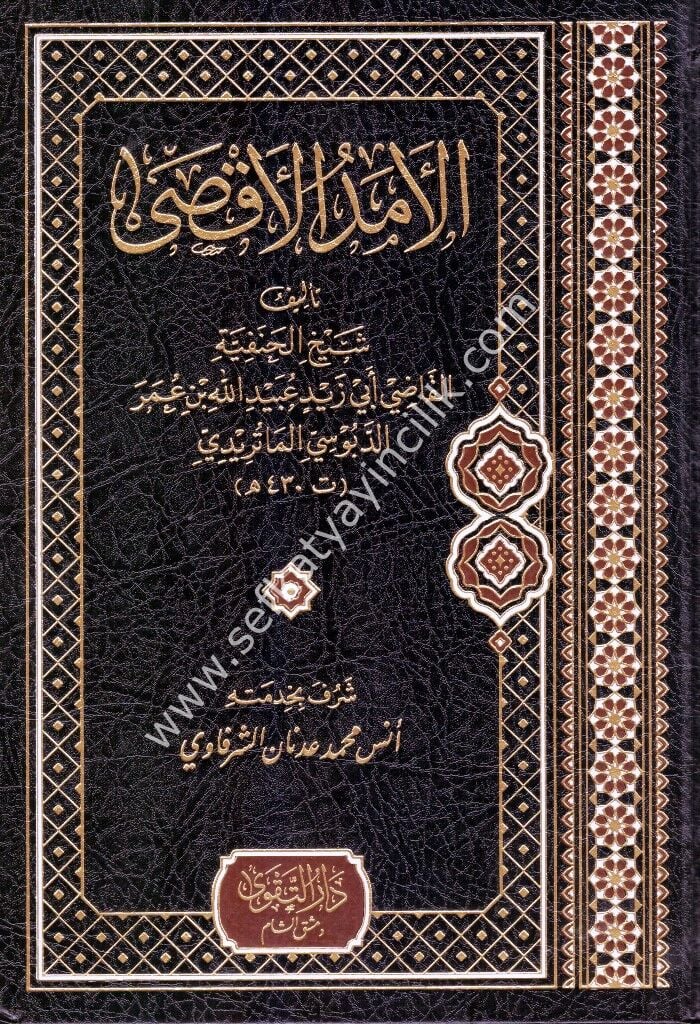 الأَمَدُ الأَقْصَى
تأليف
شَيْخِ الحَنَفِيَّةِ
القَاضِي أَبِي زَيْدٍ عُبَيْدِ اللهِ بْنِ عُمَرَ
الدَّبُوسِيِّ المَاتُرِيدِيِّ
(ت ٤٣٠ هـ)
شَرُفَ بِخِدْمَتِهِ
أنس محمد عدنان الشرفاوي
دَارُ التَّقْوَى
دمشق الشام
www.seffkatyayincilik.com